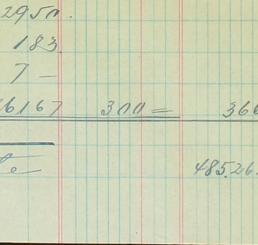 2950.
183
7 —
6167 300 = 36
485.26.